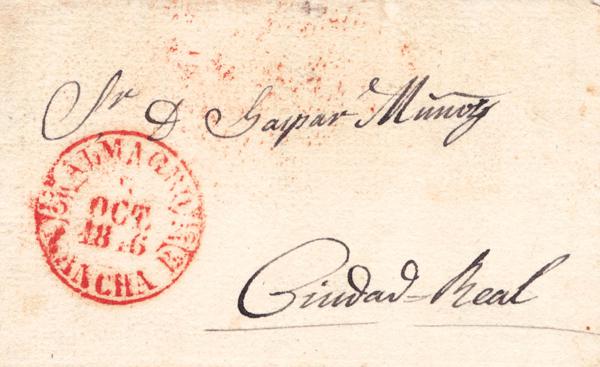 Sr D Gaspar Muñoz
ALMAGRO
OCT.
18 6
MANCHA B.
Ciudad=Real